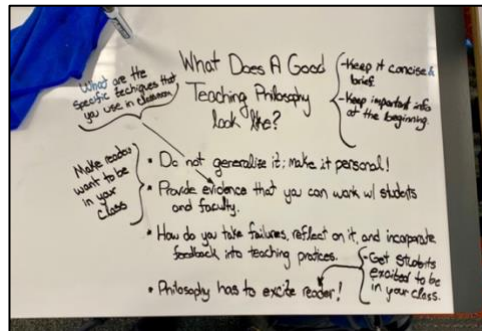 What Does A Good
Teaching Philosophy
look like?
What are the
specific techniques that
you use in classroom
-Keep it concise &
brief.
-Keep important info
at the beginning.
Make reader
want to be
in your
class
• Do not generalize it; make it personal!
• Provide evidence that you can work w/ students
and faculty.
• How do you take failures, reflect on it, and incorporate
feedback into teaching practices.
• Philosophy has to excite reader!
-Get students
excited to be
in your class.